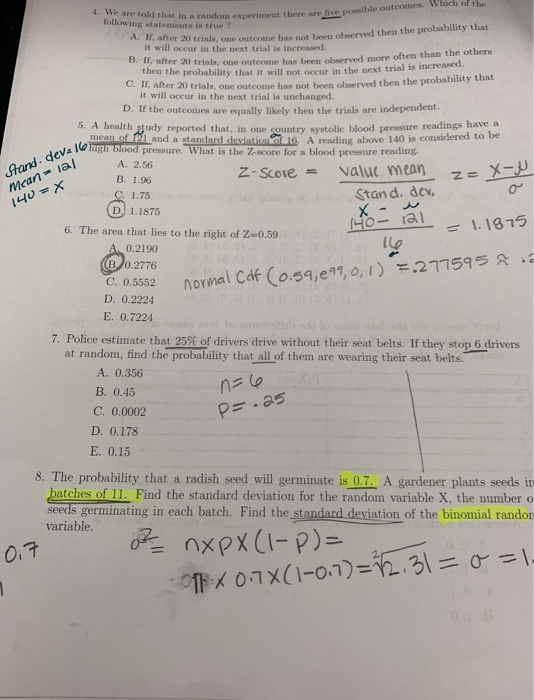 4. We are told that in a random experiment there are five possible outcomes. Which of the
following statements is true ?
A. If, after 20 trials, one outcome has not been observed then the probability that
it will occur in the next trial is increased.
B. If, after 20 trials, one outcome has been observed more often than the others
then the probability that it will not occur in the next trial is increased.
C. If, after 20 trials, one outcome has not been observed then the probability that
it will occur in the next trial is unchanged.
D. If the outcomes are equally likely then the trials are independent.
5. A health study reported that, in one country systolic blood pressure readings have a
mean of 121 and a standard deviation of 16. A reading above 140 is considered to be
high blood pressure. What is the Z-score for a blood pressure reading.
Stand. dev = 16
mean = 121
140 = X
A. 2.56
B. 1.96
C. 1.75
D. 1.1875
Z-Score = value mean / Stand. dev.
Z = X-μ / σ
X - μ
140 - 121 / 16 = 1.1875
6. The area that lies to the right of Z=0.59
A. 0.2190
B. 0.2776
C. 0.5552
D. 0.2224
E. 0.7224
normal Cdf (0.59, e99, 0, 1) = .277595 ≈
7. Police estimate that 25% of drivers drive without their seat belts. If they stop 6 drivers
at random, find the probability that all of them are wearing their seat belts.
A. 0.356
B. 0.45
C. 0.0002
D. 0.178
E. 0.15
n=6
p= .25
8. The probability that a radish seed will germinate is 0.7. A gardener plants seeds in
batches of 11. Find the standard deviation for the random variable X, the number o
seeds germinating in each batch. Find the standard deviation of the binomial random
variable.
0.7
σ² = n x p x (1-p) =
11 x 0.7 x (1-0.7) = ²√2.31 = σ = 1.